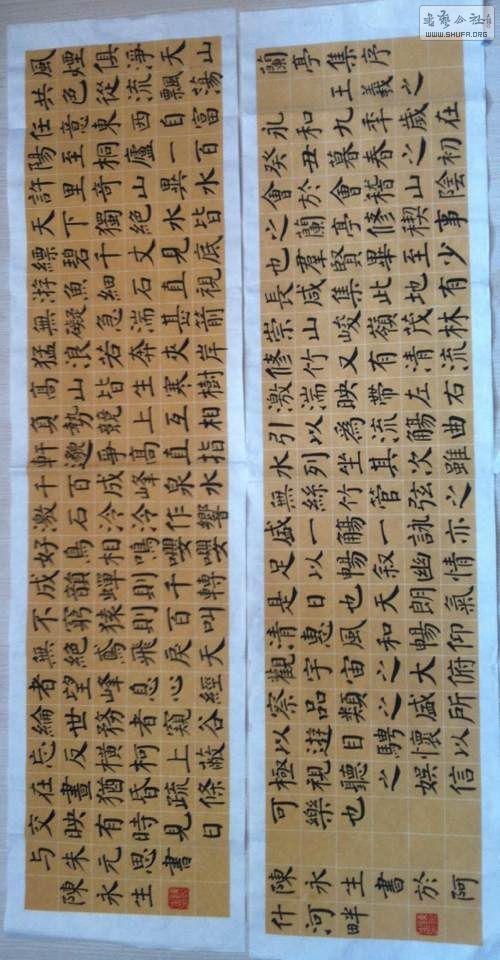 風煙俱淨天山
共色從流飄蕩
任意東西自富
陽至桐廬一百
許里奇山異水
天下獨絕水皆
縹碧千丈見底
游魚細石直視
無礙急湍甚箭
猛浪若奔夾岸
高山皆生寒樹
負勢競上互相
軒邈爭高直指
千百成峰泉水
激石泠泠作響
好鳥相鳴嚶嚶
成韻蟬則千轉
不窮猿則百叫
無絕鳶飛戾天
者望峰息心經
綸世務者窺谷
忘反橫柯上蔽
在晝猶昏疏條
交映有時見日
与朱元思書
陳永生
蘭亭集序
王羲之
永和九年歲在
癸丑暮春之初
會於會稽山陰
之蘭亭修禊事
也羣賢畢至少
長咸集此地有
崇山峻嶺茂林
修竹又有清流
激湍映帶左右
引以為流觴曲
水列坐其次雖
無絲竹管弦之
盛一觴一詠亦
足以暢叙幽情
是日也天朗氣
清惠風和暢仰
觀宇宙之大俯
察品類之盛所
以遊目騁懷以
極視聽之娛信
可樂也
陳永生書於阿
什河畔
WWW.SHUFA.ORG